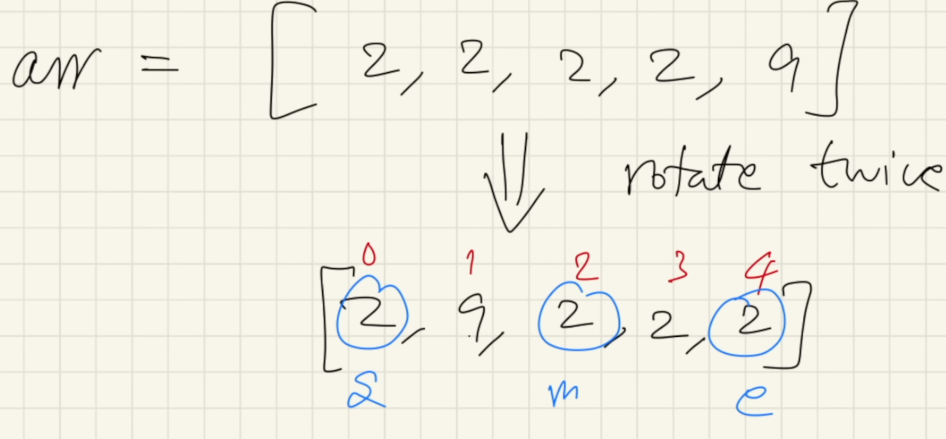 arr = [ 2, 2, 2, 2, 9 ]
rotate twice
0 1 2 3 4
[ 2, 9, 2, 2, 2 ]
s m e